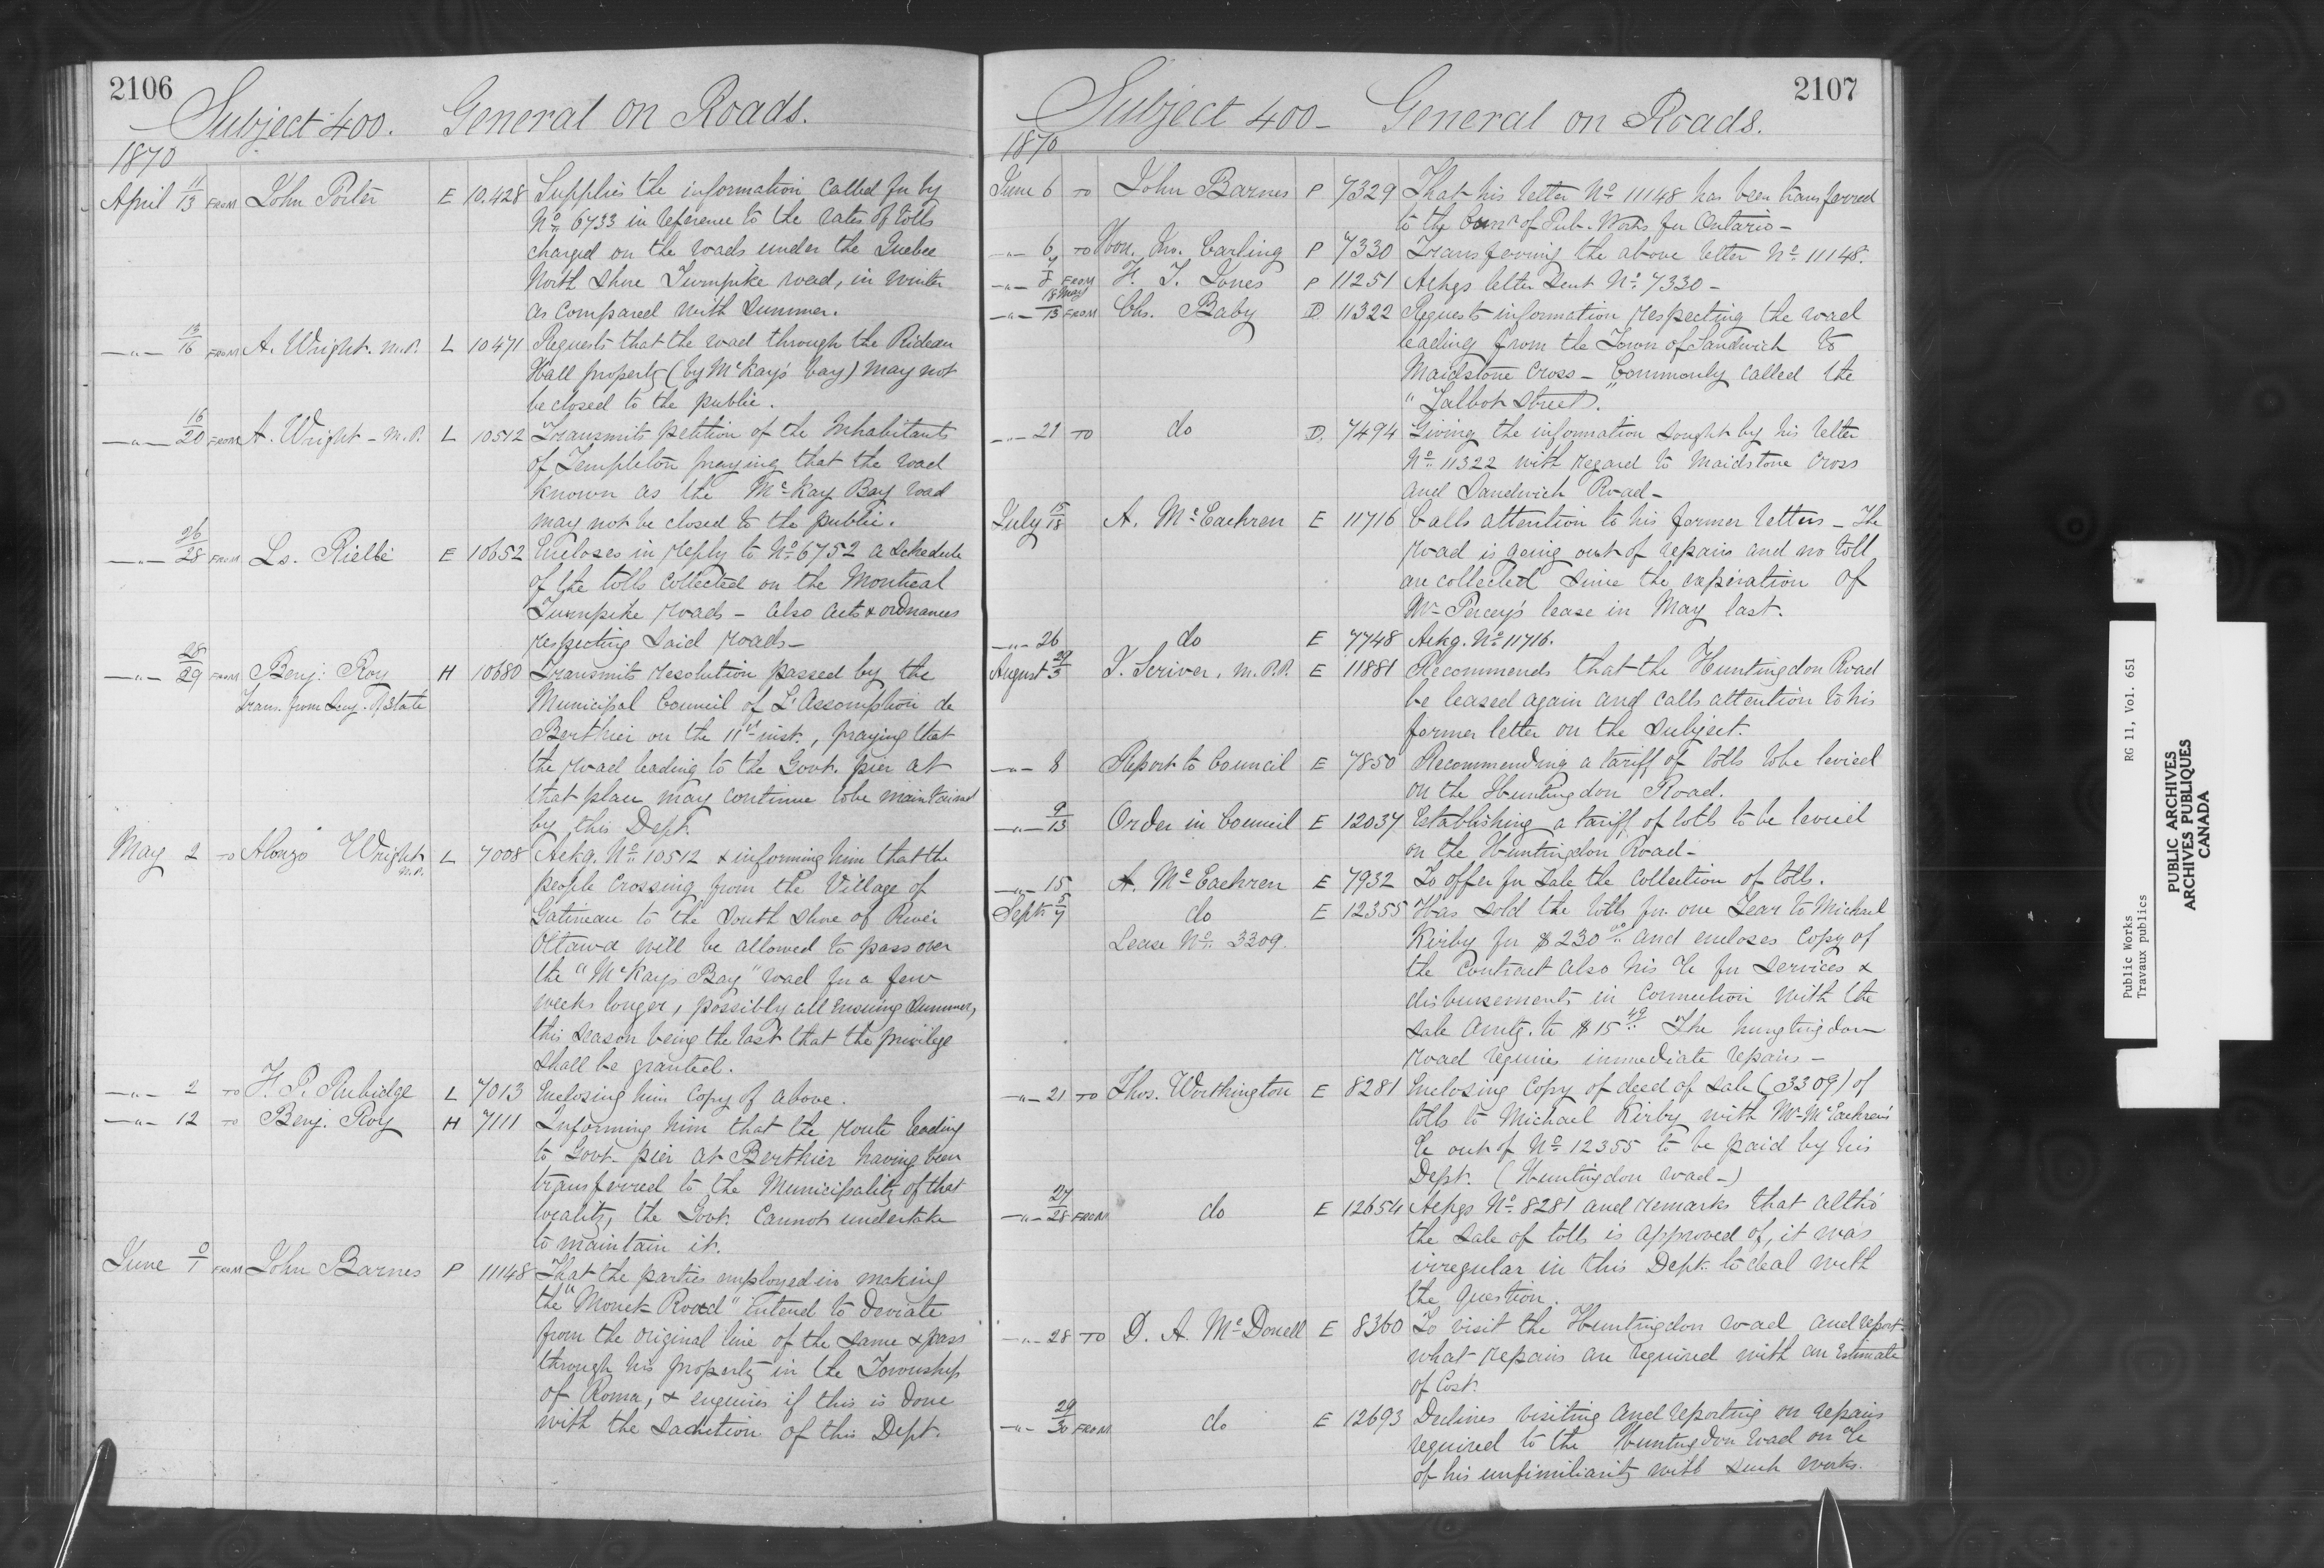 2106
Subject 400. General on Roads.
1870
April 11/13 FROM John Porter E 10.428 Supplies the information called for by
No. 6733 in reference to the rates of tolls
charged on the roads under the Quebec
North Shore Turnpike road, in winter
as compared with Summer.
—"— 13/16 FROM A. Wright. M.P. L 10471 Requests that the road through the Rideau
Hall property (by McKay's bay) may not
be closed to the public.
—"— 16/20 FROM A. Wright - M.P. L 10512 Transmits petition of the Inhabitants
of Templeton praying that the road
known as the McKay Bay road
may not be closed to the public.
—"— 26/28 FROM Ls. E 10652 Encloses in reply to No. 6752 a schedule
of the tolls collected on the Montreal
Turnpike roads - also acts & ordnances
respecting said roads -
—"— 28/29 FROM Benj: Roy H 10680 Transmits resolution passed by the
Trans. from Secy. of State Municipal Council of L'Assomption de
Berthier on the 11th inst., praying that
the road leading to the Govt. pier at
that place may continue to be maintained
by this Dept.
May 2 TO Alonzo Wright M.P. L 7008 Ackg. No. 10512 & informing him that the
people crossing from the Village of
Gatineau to the South Shore of River
Ottawa will be allowed to pass over
the "McKay's Bay" road for a few
weeks longer, possibly all ensuing summer,
this season being the last that the privilege
shall be granted.
—"— 2 TO F. P. Rubidge L 7013 Enclosing him copy of above.
—"— 12 TO Benj. Roy H 7111 Informing him that the route leading
to Govt. pier at Berthier having been
transferred to the Municipality of that
locality, the Govt. cannot undertake
to maintain it.
June 0/1 FROM John Barnes P 11148 That the parties employed in making
the "Monck Road" intend to deviate
from the original line of the same & pass
through his property in the Township
of Roma, & enquires if this is done
with the sanction of this Dept.
2107
Subject 400 - General on Roads.
1870
June 6 TO John Barnes P 7329 That his letter No. 11148 has been transferred
to the Comr. of Pub. Works for Ontario -
—"— 6 TO Hon. Jno. Carling P 7330 Transferring the above letter No. 11148.
—"— FROM H. J. Jones P 11251 Ackgs letter sent No. 7330 -
—"— 18 May/13 FROM Chs. Baby D. 11322 Requests information respecting the road
leading from the Town of Sandwich to
Maidstone Cross - Commonly called the
"Talbot Street."
—"— 21 TO do D. 7494 Giving the information sought by his letter
No. 11322 with regard to Maidstone Cross
and Sandwich Road -
July 15/18 A. McEachren E 11716 Calls attention to his former letters - The
road is going out of repairs and no toll
are collected since the expiration of
Mr. Percey's lease in May last.
—"— 26 do E 7748 Ackg. No. 11716.
August 29/3 J. Scriver. M.P.P. E 11881 Recommends that the Huntingdon Road
be leased again and calls attention to his
former letter on the subject.
—"— 8 Report to Council E 7850 Recommending a tariff of tolls to be levied
on the Huntingdon Road.
—"— 9/13 Order in Council E 12037 Establishing a tariff of tolls to be levied
on the Huntingdon Road -
—"— 15 A. McEachren E 7932 To offer for Sale the collection of tolls.
Sept. 5/7 do E 12355 Has sold the tolls for one Year to Michael
Lease No. 3309. Kirby for $230.00 and encloses copy of
the Contract also his a/c for services &
disbursements in connection with the
sale amtg. to $15.49. The hungtingdon
road requires immediate repairs -
—"— 21 TO Thos. Worthington E 8281 Enclosing copy of deed of sale (3309) of
tolls to Michael Kirby with Mr. McEachren's
a/c out of No. 12355 to be paid by his
Dept. (Huntingdon road -)
—"— 27/28 FROM do E 12654 Ackgs No. 8281 and remarks that altho'
the sale of tolls is approved of, it was
irregular in this Dept. to deal with
the question.
—"— 28 TO D. A. McDonell E 8360 To visit the Huntingdon road and report
what repairs are required with an Estimate
of Cost.
—"— 29/30 FROM do E 12693 Declines visiting and reporting on repairs
required to the Huntingdon road on a/c
of his unfimiliarity with such works.
Public Works RG 11, Vol. 651
Travaux publics
PUBLIC ARCHIVES
ARCHIVES PUBLIQUES
CANADA